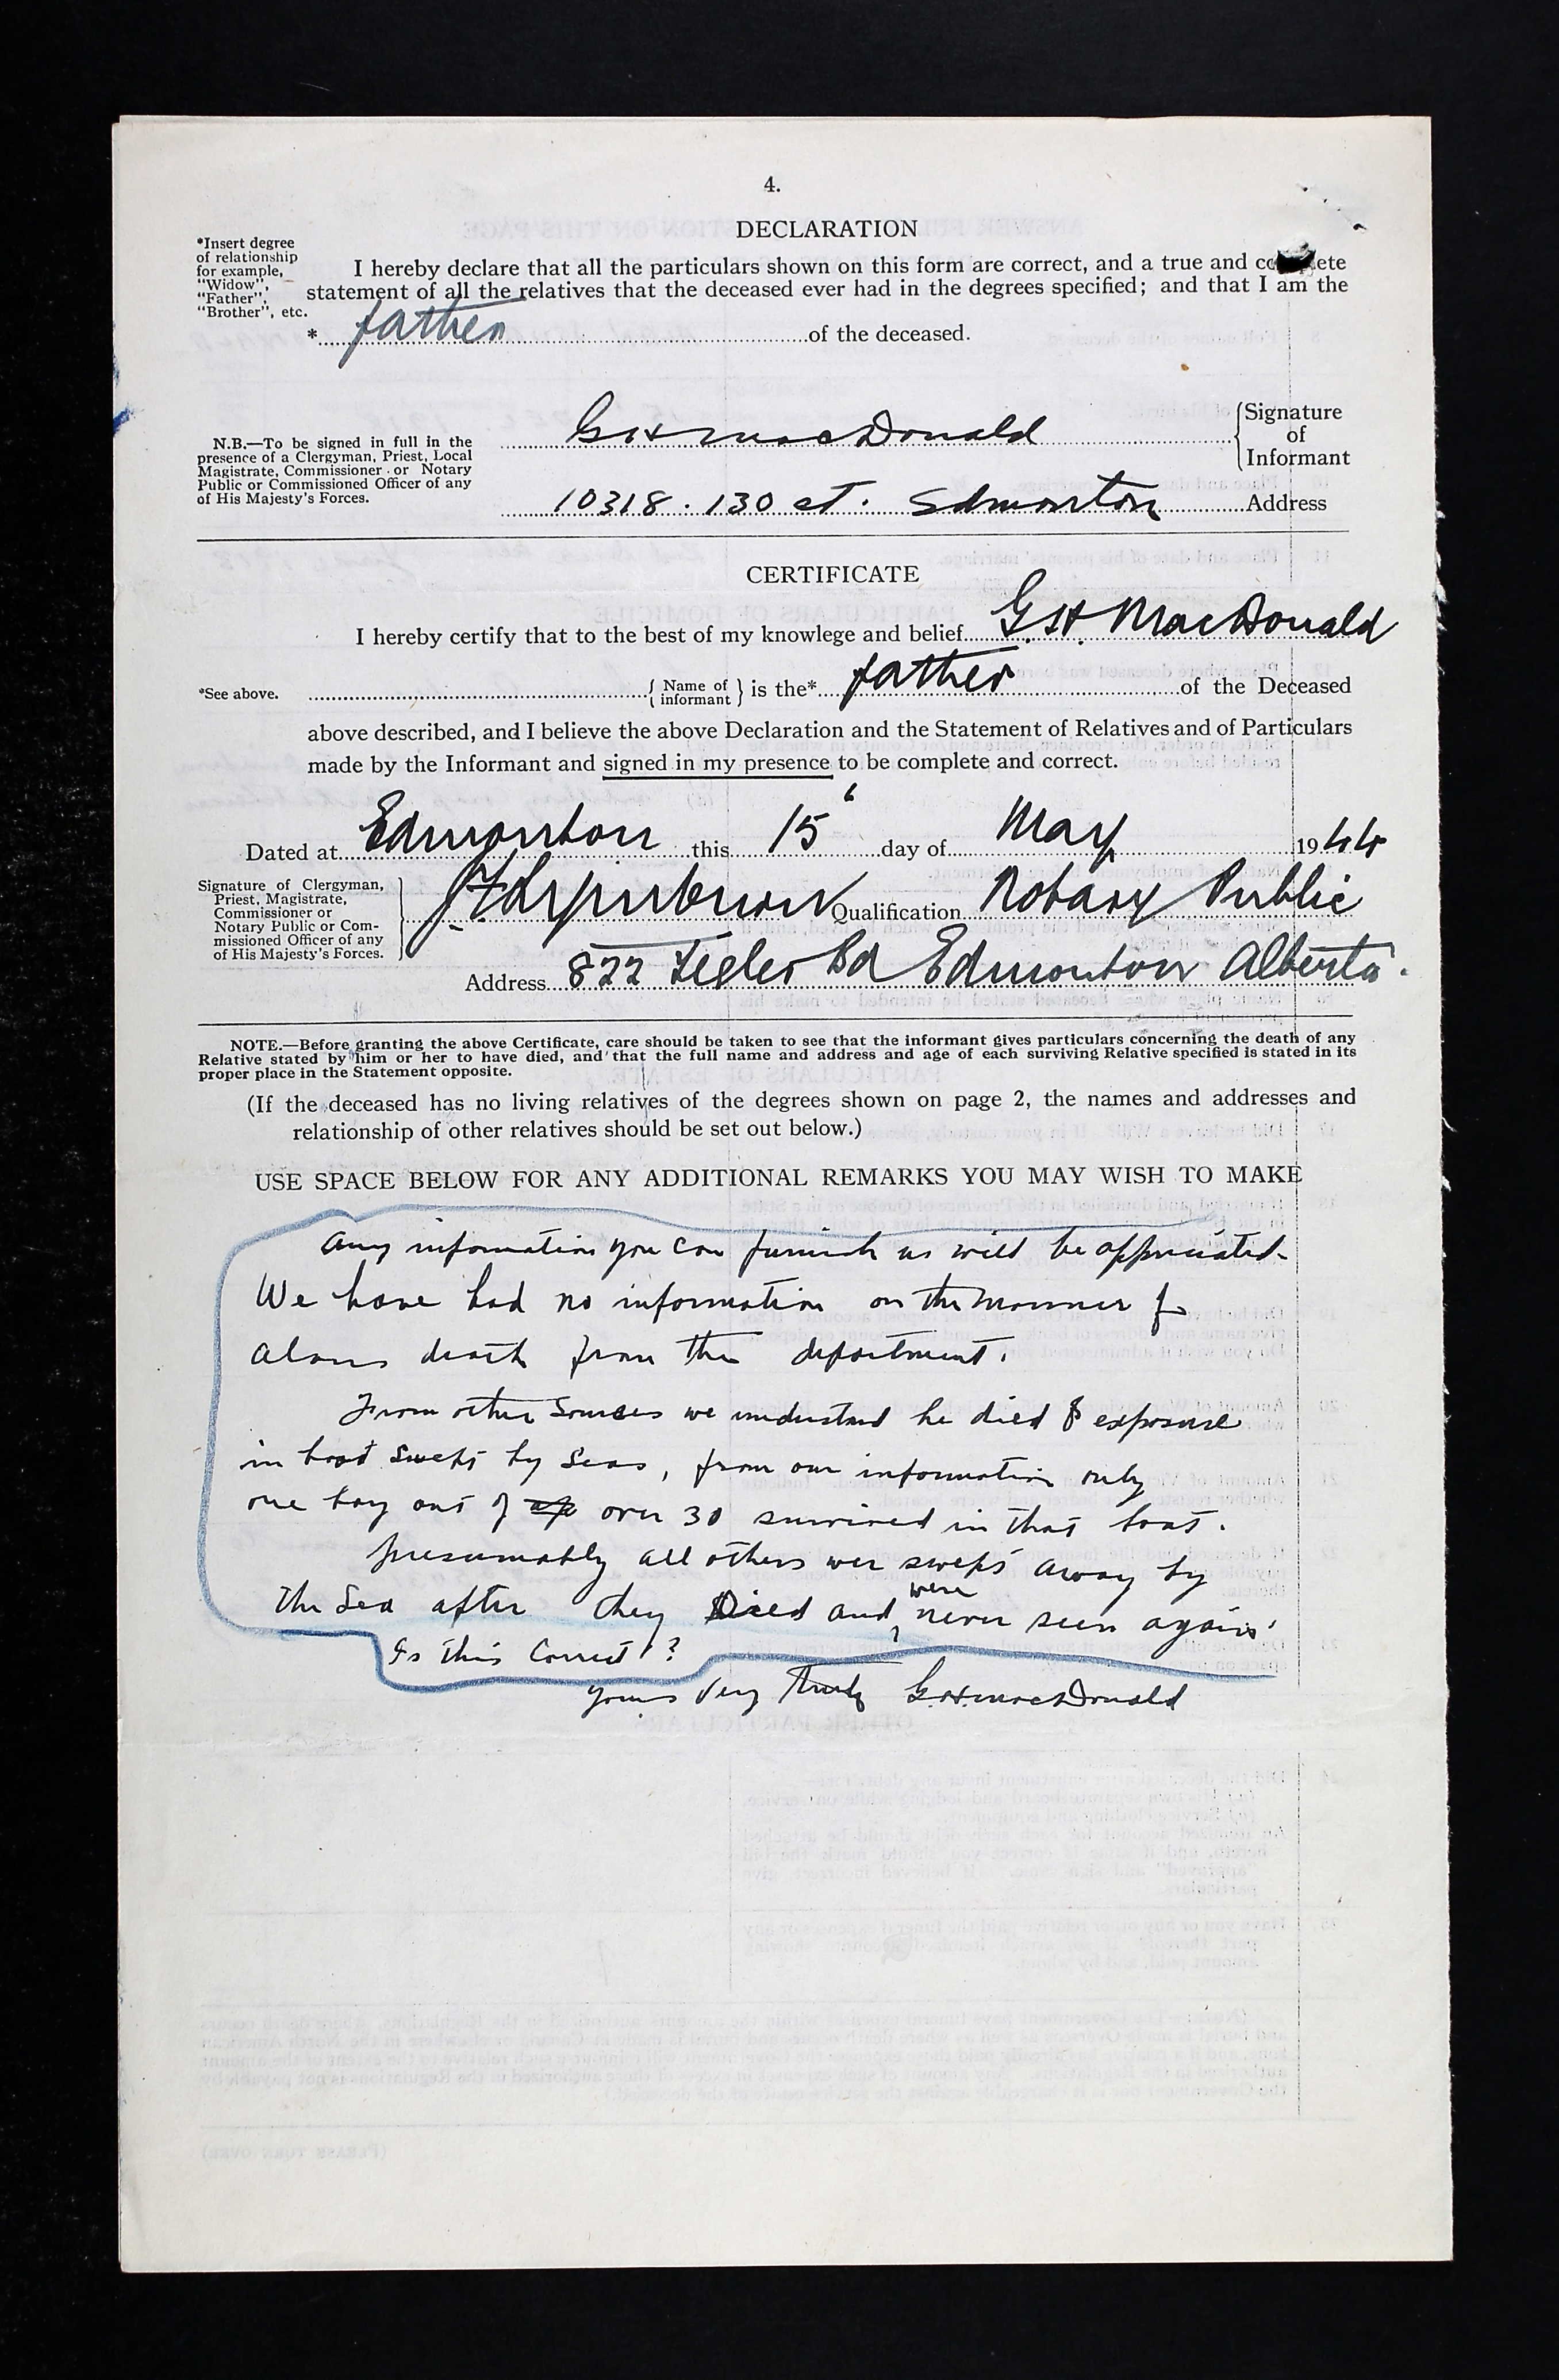 4.
DECLARATION
*Insert degree
of relationship
for example,
"Widow",
"Father",
"Brother", etc.
I hereby declare that all the particulars shown on this form are correct, and a true and co ete
statement of all the relatives that the deceased ever had in the degrees specified; and that I am the
* father of the deceased.
N.B.—To be signed in full in the
presence of a Clergyman, Priest, Local
Magistrate, Commissioner or Notary
Public or Commissioned Officer of any
of His Majesty's Forces.
G H MacDonald
Signature
of
Informant
10318 . 130 st. Edmonton Address
CERTIFICATE
I hereby certify that to the best of my knowlege and belief G.H. MacDonald
*See above. { Name of informant } is the* father of the Deceased
above described, and I believe the above Declaration and the Statement of Relatives and of Particulars
made by the Informant and signed in my presence to be complete and correct.
Dated at Edmonton this 15 day of May 1944
Signature of Clergyman,
Priest, Magistrate,
Commissioner or
Notary Public or Com-
missioned Officer of any
of His Majesty's Forces.
Qualification Notary Public
Address 822 Tegler Bd Edmonton Alberta.
NOTE.—Before granting the above Certificate, care should be taken to see that the informant gives particulars concerning the death of any
Relative stated by him or her to have died, and that the full name and address and age of each surviving Relative specified is stated in its
proper place in the Statement opposite.
(If the deceased has no living relatives of the degrees shown on page 2, the names and addresses and
relationship of other relatives should be set out below.)
USE SPACE BELOW FOR ANY ADDITIONAL REMARKS YOU MAY WISH TO MAKE
Any information you can furnish us will be appreciated.
We have had no information on the manner of
Alans death from the department.
From other sources we understand he died of exposure
in boat swept by seas, from our information only
one boy out of over 30 survived in that boat.
Presumably all others wer swept away by
the Sea after they Died and were never seen again.
Is this Correct?
Yours Very Truly G.H. MacDonald